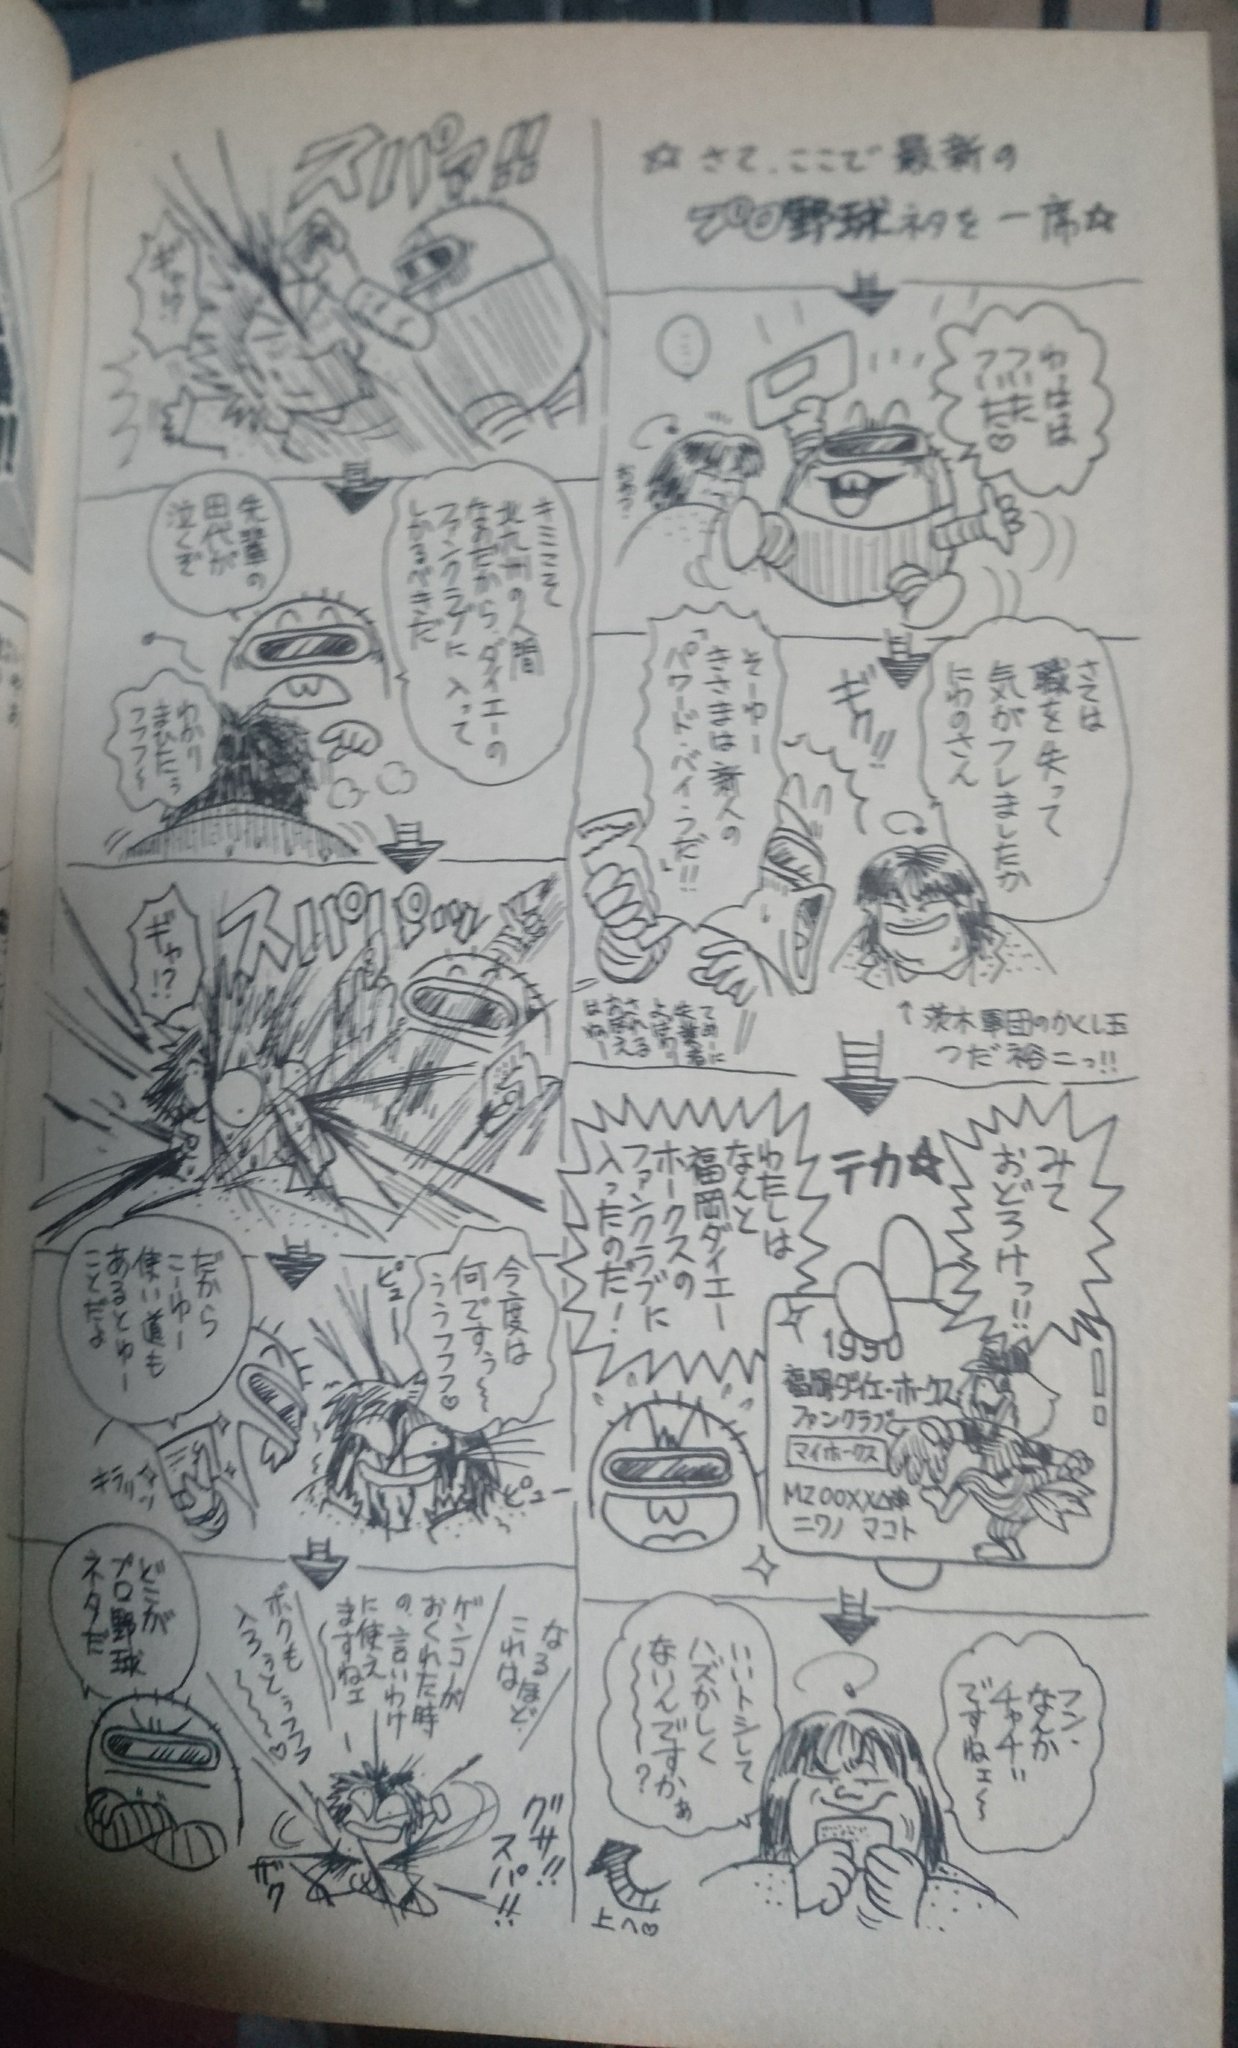 ☆さて、ここで最新の
プロ野球ネタを一席☆
わははは
ついに
おお?
さては
職を失って
気がフレましたか
にわのさん
ギク!!
そーゆー
きさまは新人の
「パワード・ベイ・つだ」!!
てめーに
失業者
よばわり
される
おぼえ
はねー
↑茨木軍団のかくし玉
つだ裕二っ!!
みて
おどろけっ!!
テカ☆
わたしは
なんと
福岡ダイエー
ホークスの
ファンクラブに
入ったのだ!
1990
福岡ダイエーホークス
ファンクラブ
マイホークス
ニワノ マコト
フン、
なんか
チャチい
ですねェ〜
いいトシして
ハズかしく
ないんですかぁ
〜〜?
上へ♡
スパァ!!
ギャ!?
キミこそ
北九州の人間
なのだから、ダイエーの
ファンクラブに入って
しかるべきだ
先輩の
田代が
泣くぞ
わかり
まひたぅ
フフフ〜
スパパッ
ギャ!?
今度は
何ですぅ〜
ううフフフ♡
ピュー
ピュー
だから
こーゆー
使い道も
あるとゆー
ことだよ
キラリン
なるほど
これは
ゲンコーが
おくれた時
の、言いわけ
に使え
ますねェ
ボクも
入ろぅっとぅフフフ
〜〜♡
グサ!!
スパ!!
ザク
どこが
プロ野球
ネタだ